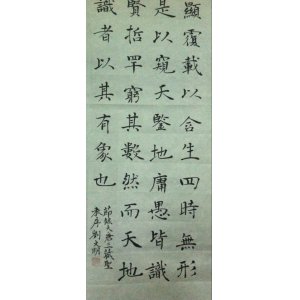 顯覆載以含生四時無形
是以窺天鑒地庸愚皆識
賢哲罕窮其數然而天地
識者以其有象也
節錄大唐三藏聖
教序劉文明